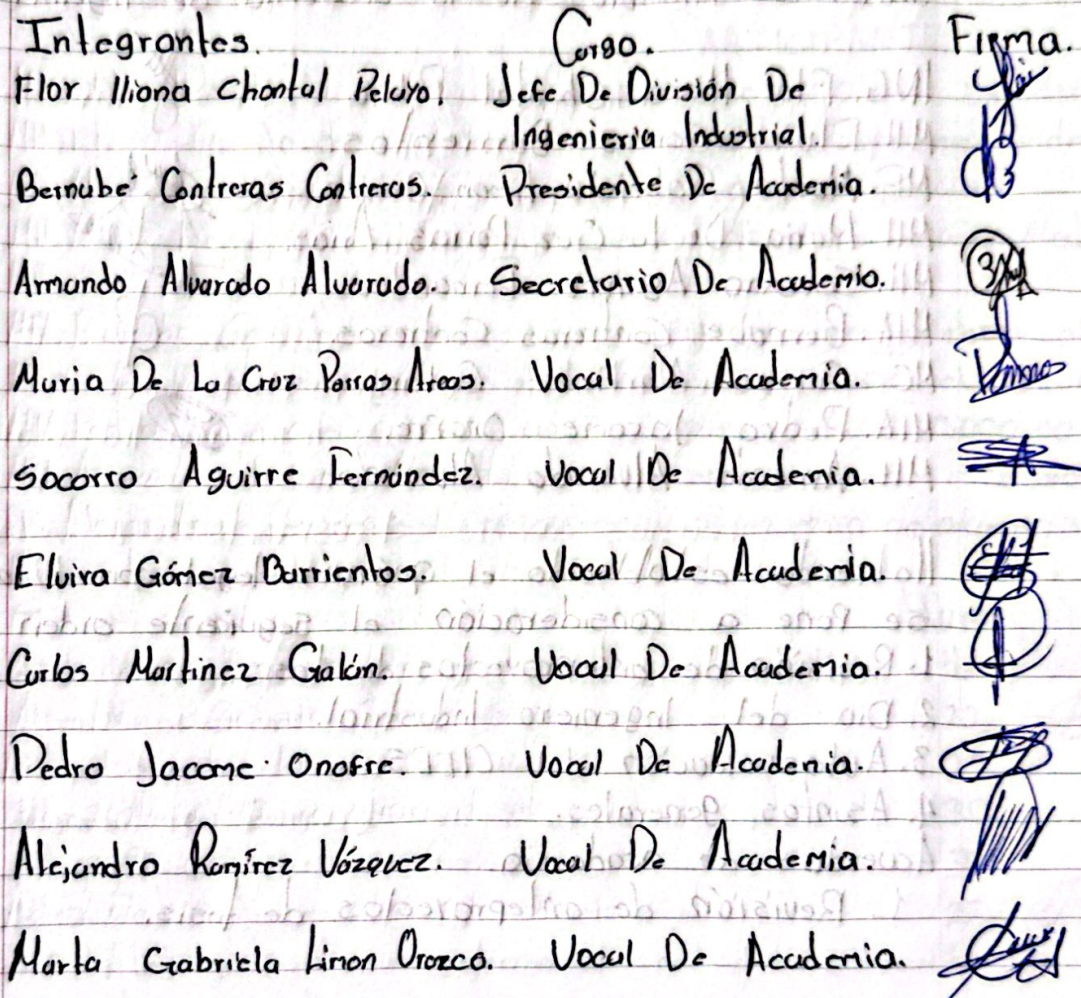 Integrantes. Cargo. Firma.
Flor Iliana Chontal Pelayo. Jefe De División De
Ingenieria Industrial.
Bernabé Contreras Contreras. Presidente De Academia.
Armando Alvarado Alvarado. Secretario De Academia.
Maria De La Cruz Porras Arias. Vocal De Academia.
Socorro Aguirre Fernández. Vocal De Academia.
Elvira Gómez Barrientos. Vocal De Academia.
Carlos Martinez Galán. Vocal De Academia.
Pedro Jacome Onofre. Vocal De Academia.
Alejandro Ramírez Vázquez. Vocal De Academia.
Marta Gabriela Limon Orozco. Vocal De Academia.